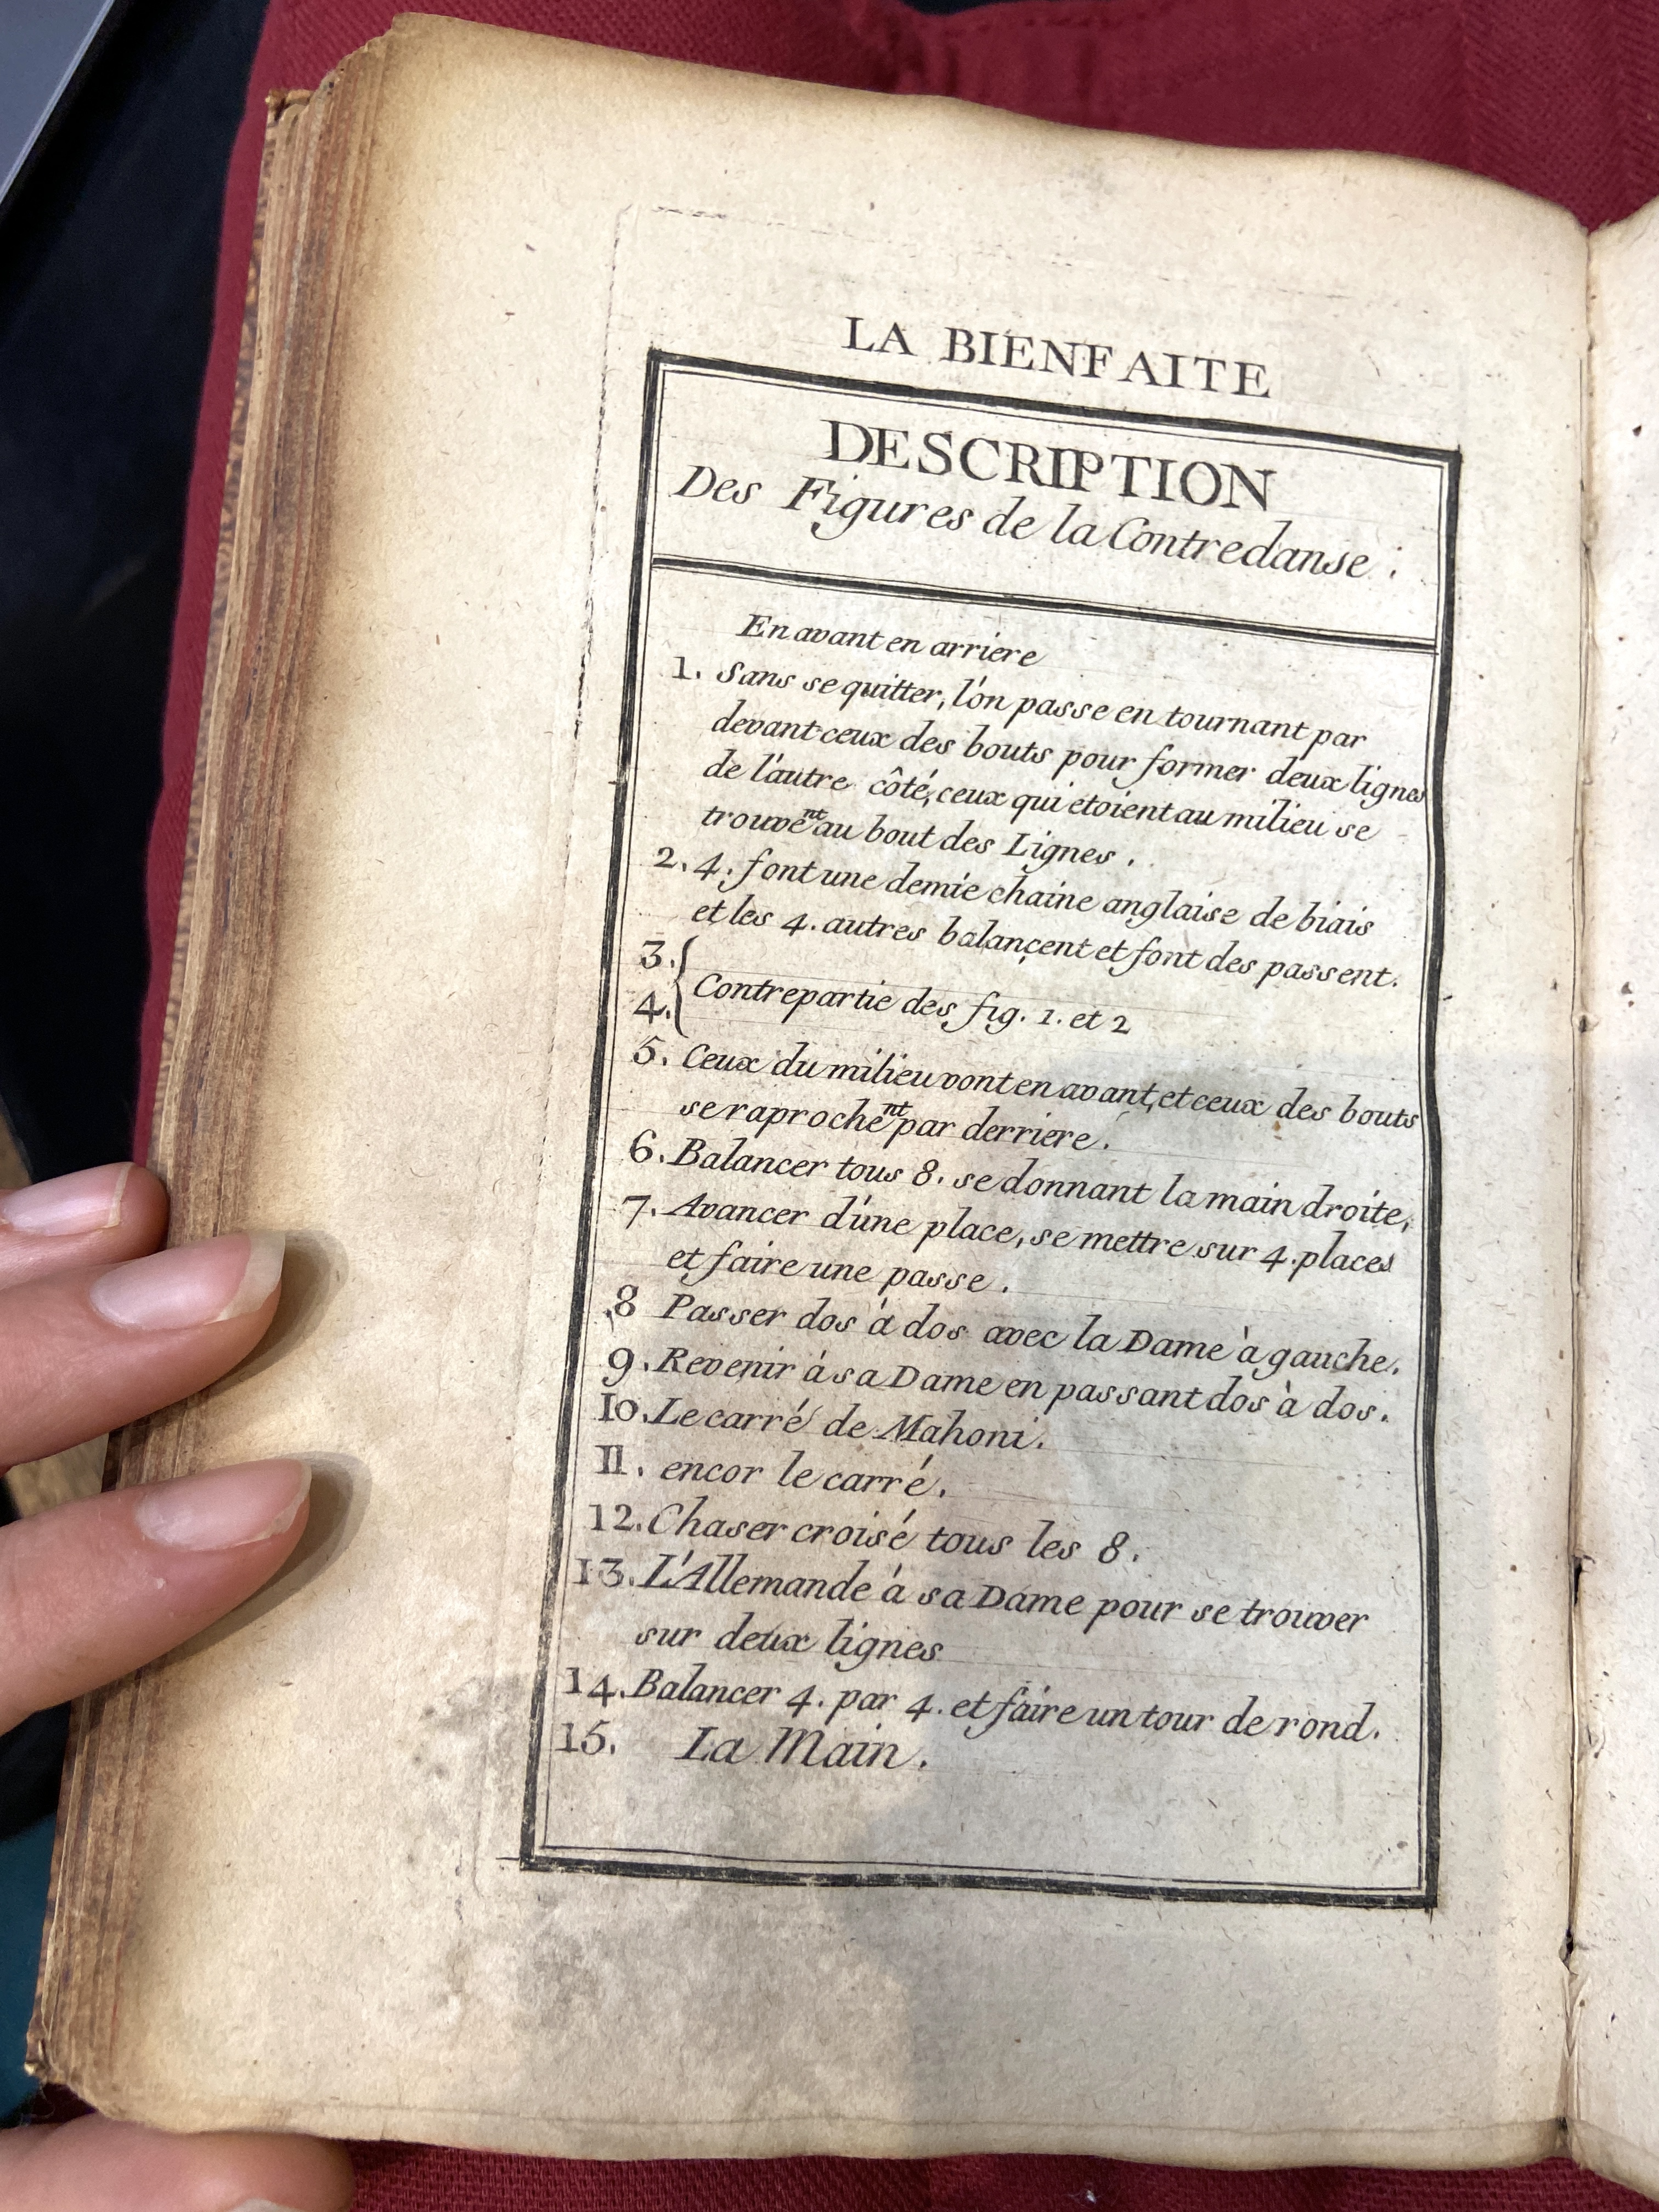 LA BIENFAITE
DESCRIPTION
Des Figures de la Contredanse :
En avant en arriere
1. Sans se quitter, l'on passe en tournant par
devant ceux des bouts pour former deux lignes
de l'autre côté, ceux qui étoient au milieu se
trouvent au bout des Lignes.
2. 4. font une demie chaine anglaise de biais
et les 4. autres balançent et font des passent.
3.
4. Contrepartie des fig. 1. et 2
5. Ceux du milieu vont en avant, et ceux des bouts
se raprochent par derriere.
6. Balancer tous 8. se donnant la main droite,
7. Avancer d'une place, se mettre sur 4. places
et faire une passe.
8 Passer dos à dos avec la Dame à gauche.
9. Revenir à sa Dame en passant dos à dos.
10. Le carré de Mahoni.
11. encor le carré.
12. Chaser croisé tous les 8.
13. L'Allemande à sa Dame pour se trouver
sur deux lignes
14. Balancer 4. par 4. et faire un tour de rond.
15. La Main.